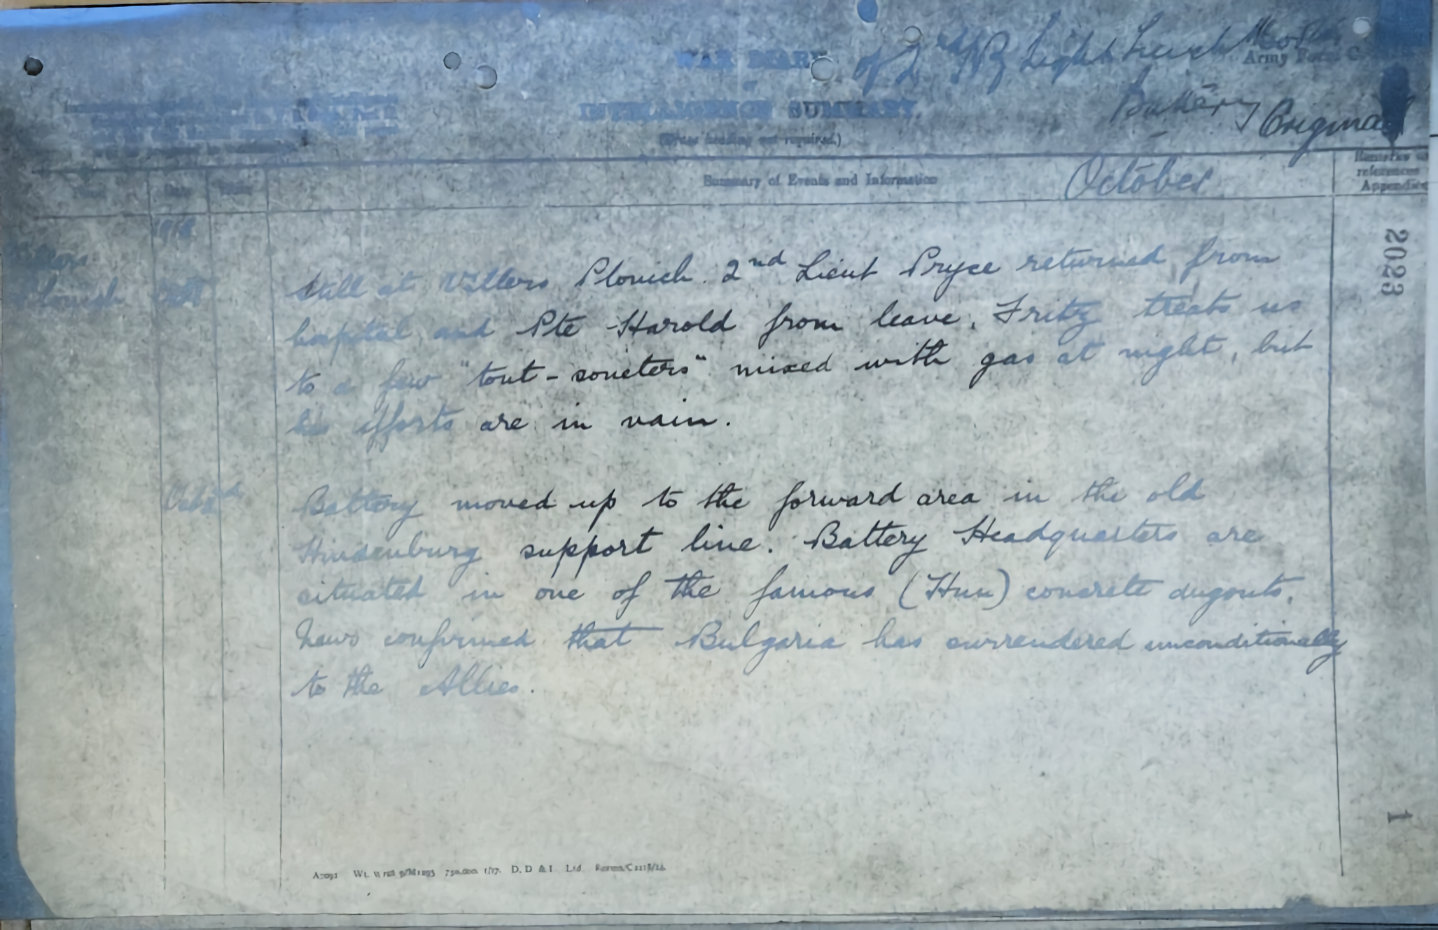 WAR DIARY of 2nd NZ Light Trench Mortar
Army Form C.
or
INTELLIGENCE SUMMARY.
Battery
Original
(Erase heading not required.)
Summary of Events and Information
October
Remarks and
references
Appendices
1918
Villers
Plouich Oct 1st Still at Villers Plouich. 2nd Lieut Pryce returned from
hospital and Pte Harold from leave. Fritz treats us
to a few "tout-soneters" mixed with gas at night, but
his efforts are in vain.
Oct 2nd Battery moved up to the forward area in the old
Hindenburg support line. Battery Headquarters are
situated in one of the famous (Hun) concrete dugouts.
News confirmed that Bulgaria has surrendered unconditionally
to the Allies.
2023
1
D. D. & L. Ltd.